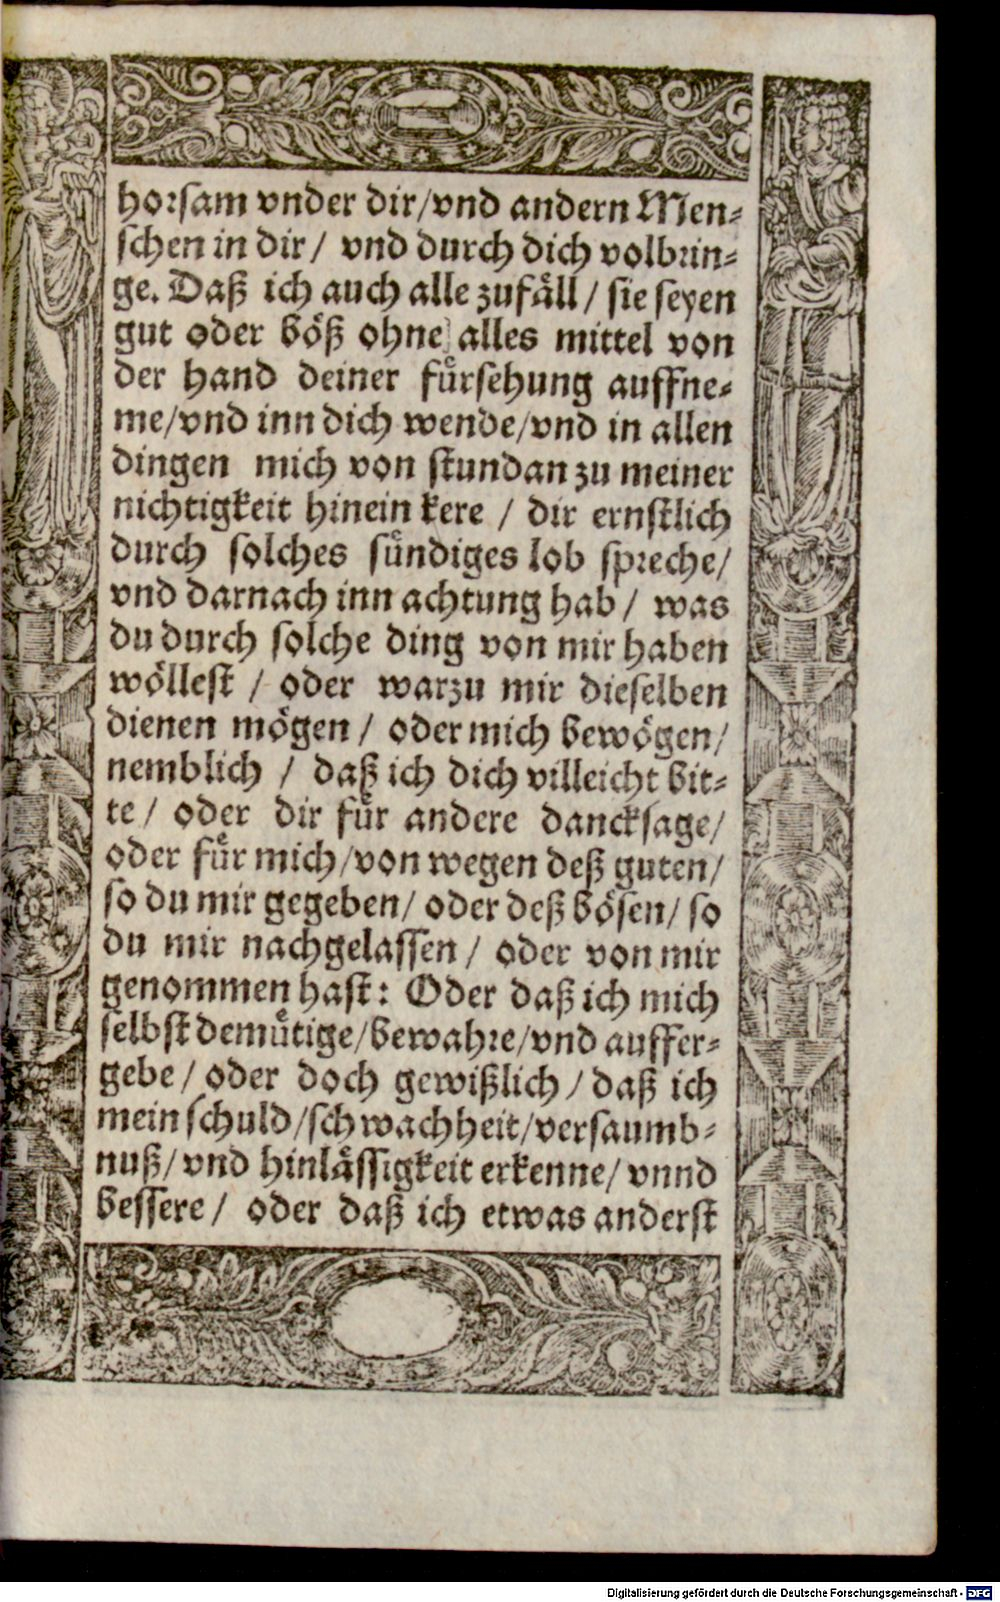 horsam vnder dir/vnd andern Men-
schen in dir/ vnd durch dich volbrin-
ge. Daß ich auch alle zufäll/ sie seyen
gut oder böß ohne alles mittel von
der hand deiner fürsehung auffne-
me/vnd inn dich wende/vnd in allen
dingen mich von stundan zu meiner
nichtigkeit hinein kere / dir ernstlich
durch solches sündiges lob spreche/
vnd darnach inn achtung hab / was
du durch solche ding von mir haben
wöllest / oder warzu mir dieselben
dienen mögen / oder mich bewögen/
nemblich / daß ich dich villeicht bit-
te / oder dir für andere dancksage/
oder für mich/von wegen deß guten/
so du mir gegeben/ oder deß bösen/ so
du mir nachgelassen / oder von mir
genommen hast: Oder daß ich mich
selbst demütige/bewahre/vnd auffer-
gebe / oder doch gewißlich / daß ich
mein schuld/schwachheit/versaumb-
nuß/ vnd hinlässigkeit erkenne/ vnnd
bessere / oder daß ich etwas anderst
Digitalisierung gefördert durch die Deutsche Forschungsgemeinschaft - DFG